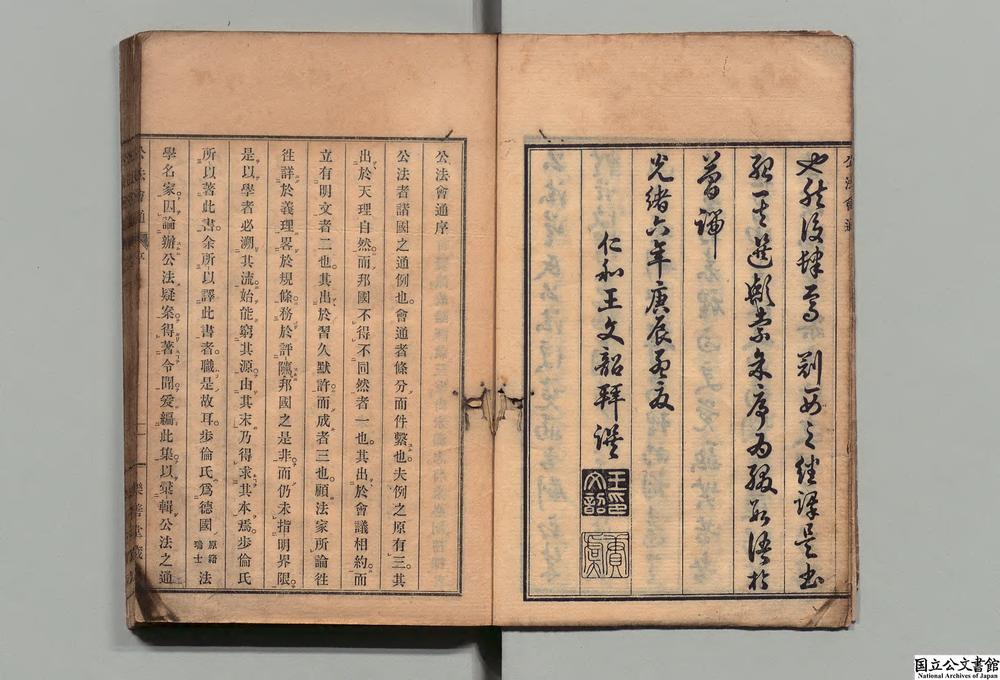 公法會通
之繼譯是書
索余序為綴數語於
簡端
光緒六年庚辰孟夏
仁和王文韶拜譔
王文韶印
公法會通序
公法者諸國之通例也。會通者條分而件繫也。夫例之原有三。其
出於天理自然。而邦國不得不同然者一也。其出於會議相約。而
立有明文者二也。其出於習久默許而成者三也。顧法家所論往
往詳於義理。畧於規條。務於評隲邦國之是非。而仍未指明界限。
是以學者必溯其流。始能窮其源。由其末。乃得求其本焉。步倫氏
所以著此書。余所以譯此書者。職是故耳。步倫氏爲德國原籍瑞士法
學名家。因論辦公法疑案。得著令聞。爰編此集。以彙輯公法之通
公法會通
序
樂善堂藏
国立公文書館
National Archives of Japan